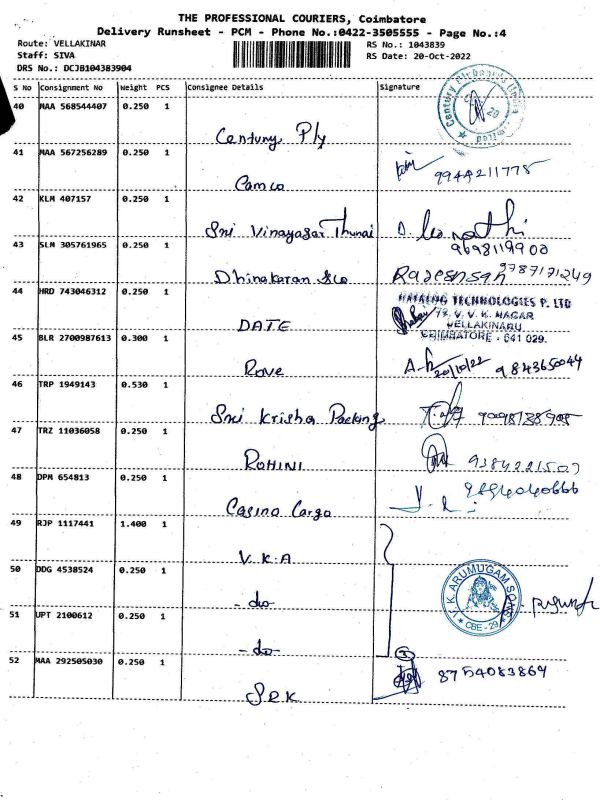 THE PROFESSIONAL COURIERS, Coimbatore
Delivery Runsheet - PCM - Phone No.:0422-3505555 - Page No.:4
Route: VELLAKINAR RS No.: 1043839
Staff: SIVA RS Date: 20-Oct-2022
DRS No.: DCJB104383904
S No Consignment No Weight PCS Consignee Details Signature
40 MAA 568544407 0.250 1
Century Ply
41 MAA 567256289 0.250 1
Camco 9944211775
42 KLM 407157 0.250 1
Sri Vinayagar Thunai
9698119900
43 SLM 305761965 0.250 1
Dhinakaran 9787171249
44 HRD 743046312 0.250 1
TECHNOLOGIES P. LTD
79, V. V. K. NAGAR
DATE VELLAKINARU
COIMBATORE - 641 029.
45 BLR 2700987613 0.300 1
Rove 20/10/22 9843650044
46 TRP 1949143 0.530 1
Sri Krisha Packing
47 TRZ 11036058 0.250 1
ROHINI
48 DPM 654813 0.250 1
Casino Cargo
49 RJP 1117441 1.400 1
V.K.A
50 DDG 4538524 0.250 1
V.K. ARUMUGAM
-do- CBE-29
51 UPT 2100612 0.250 1
-do- 3
52 MAA 292505030 0.250 1
8754083869
SRK